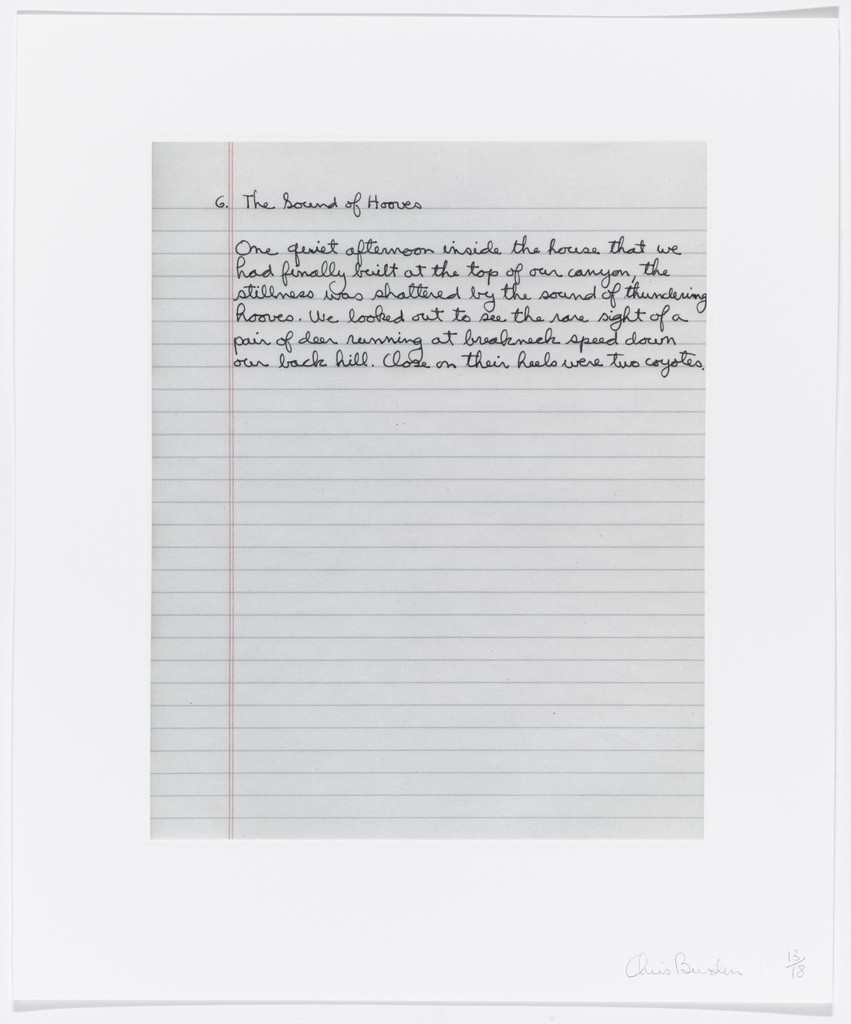 6. The Sound of Hooves
One quiet afternoon inside the house that we
had finally built at the top of our canyon, the
stillness was shattered by the sound of thundering
hooves. We looked out to see the rare sight of a
pair of deer running at breakneck speed down
our back hill. Close on their heels were two coyotes.
Chris Burden 13/18